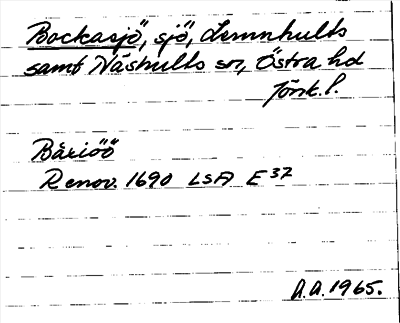 Bockasjö, sjö, Lemnhults
samt Näshults sn, Östra hd
Jönk. l.
Båriöö
Renov. 1690 LSA E 37
A.A. 1965.